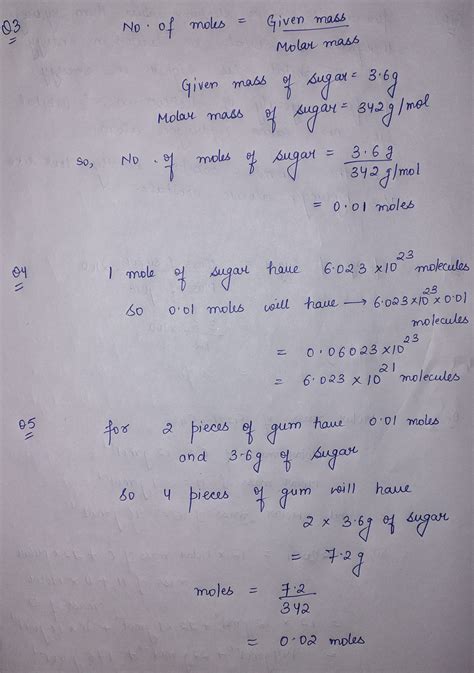 Q3 No. of moles = Given mass / Molar mass
Given mass of sugar = 3.6g
Molar mass of sugar = 342g/mol
so, No. of moles of sugar = 3.6g / 342g/mol
= 0.01 moles
Q4 1 mole of sugar have 6.023 × 10²³ molecules
so 0.01 moles will have → 6.023×10²³×0.01
molecules
= 0.06023×10²³
= 6.023 × 10²¹ molecules
Q5 for 2 pieces of gum have 0.01 moles
and 3.6g of sugar
so 4 pieces of gum will have
2 × 3.6g of sugar
= 7.2g
moles = 7.2 / 342
= 0.02 moles